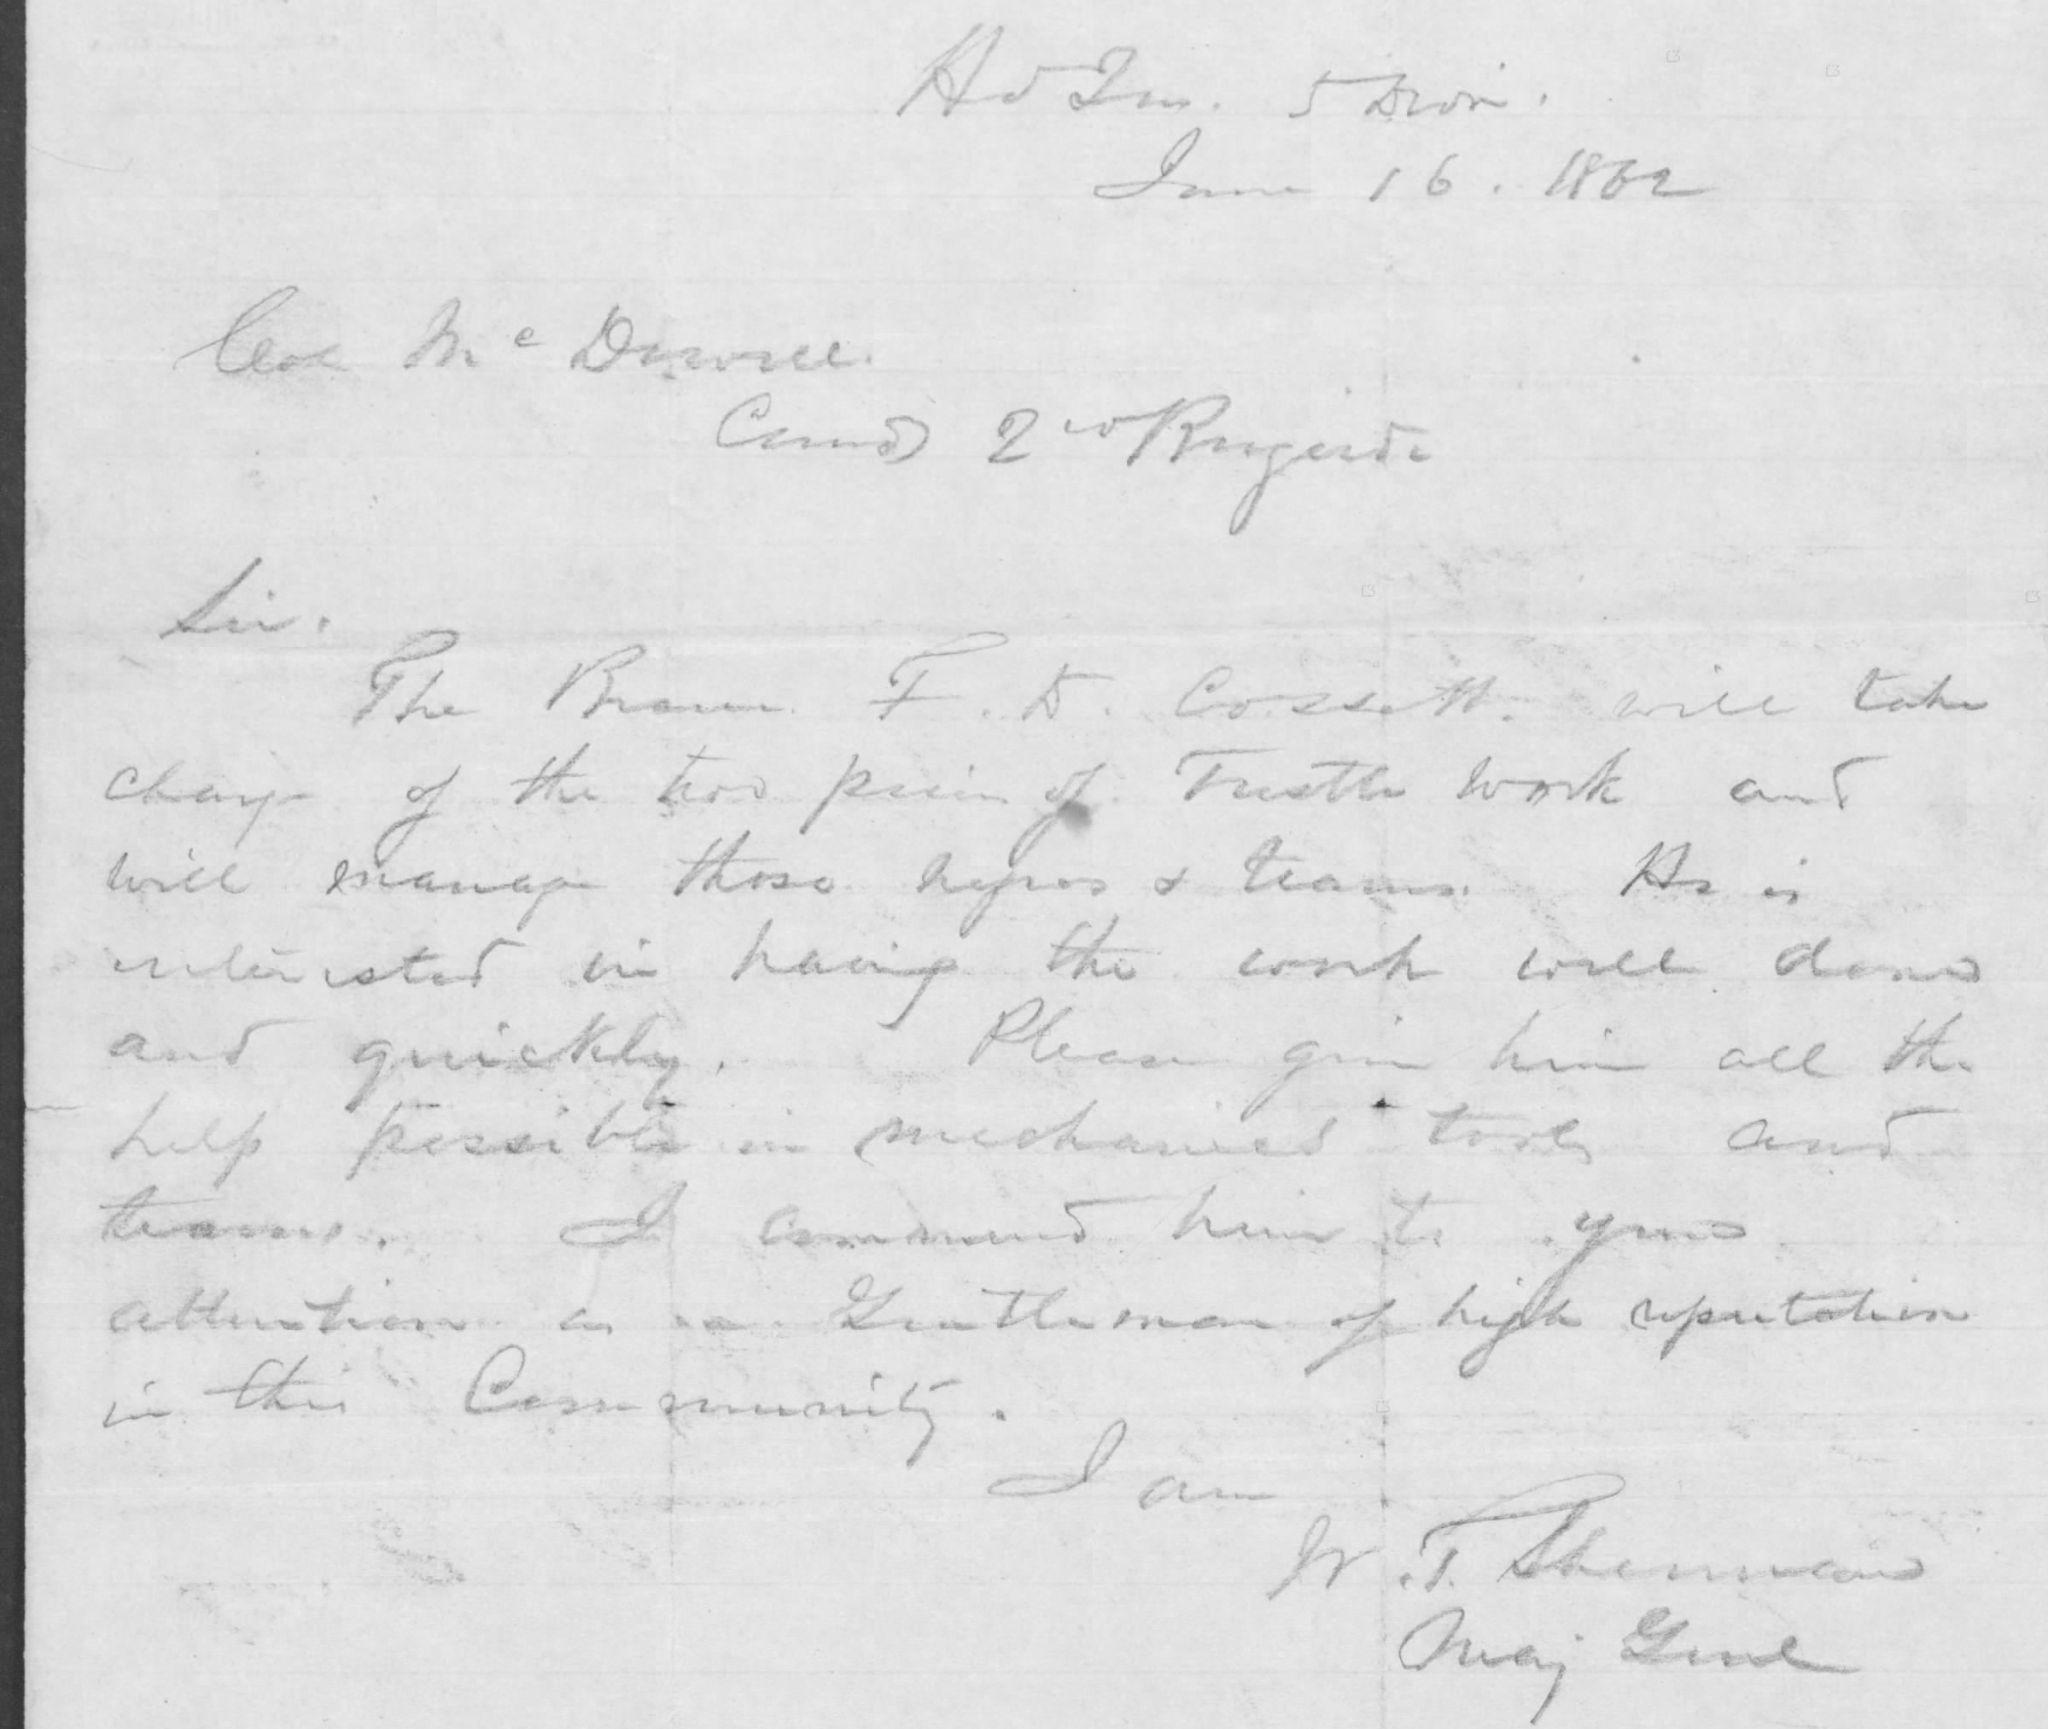 Hd Qrs. 5 Divn.
June 16. 1862
Col McDowell.
Comdg 2nd Brigade
Sir.
The Bearer F. D. Cossitt. will take
charge of the two pieces of Trestle work and
will manage those negros & teams. He is
interested in having the work well done
and quickly. Please give him all the
help possible in mechanics tools and
teams. I commend him to your
attention as a Gentleman of high reputation
in this Community.
I am
W. T. Sherman
Maj Genl